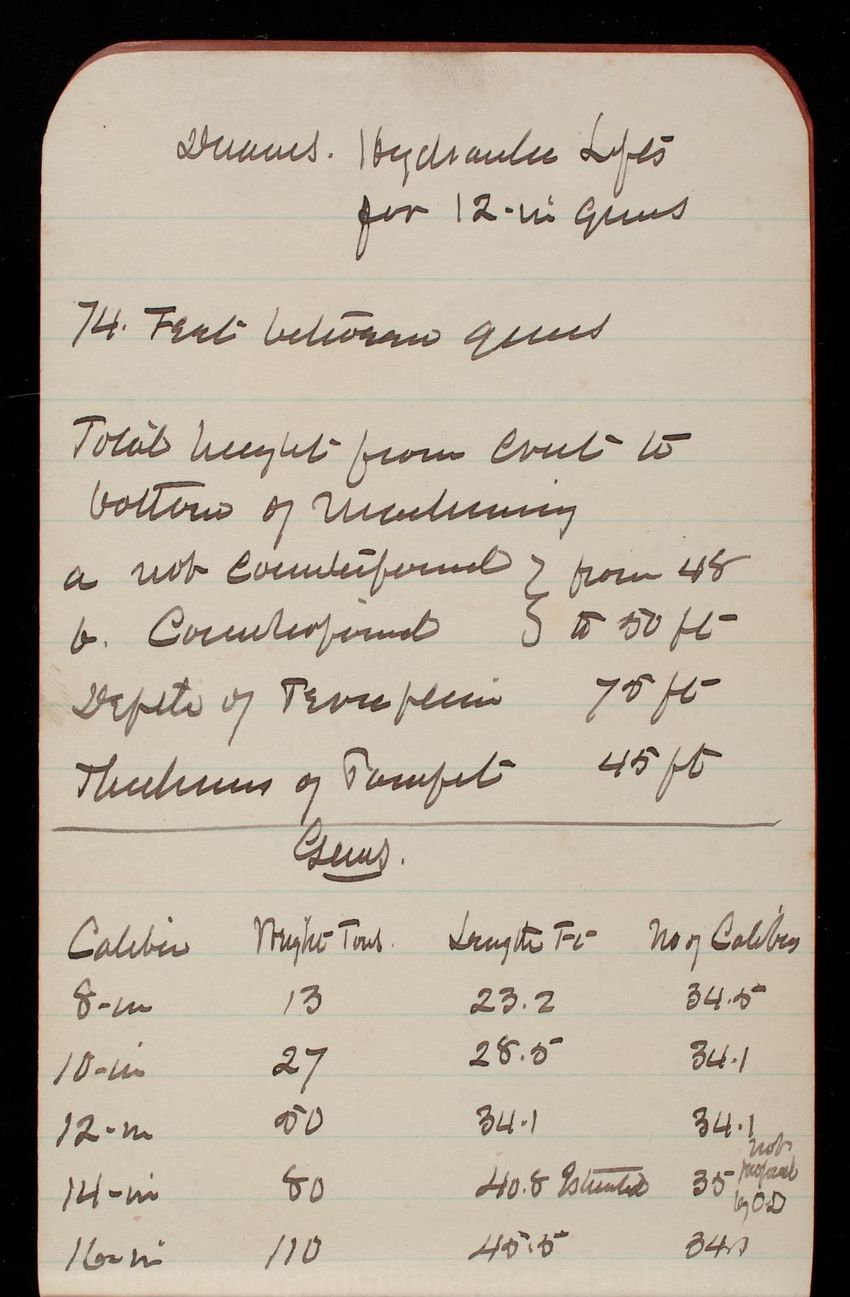 Duanes. Hydraulic Lifts
for 12-in guns
74. Feet between guns
Total height from Crest to
bottom of Machinery
a not Counterpoised } from 48
b. Counterpoised } to 50 ft
Depth of Terreplein 75 ft
Thickness of Parapet 45 ft
Guns.
Caliber Weight Tons. Length Ft No of Calibers
8-in 13 23.2 34.5
10-in 27 28.5 34.1
12-in 50 34.1 34.1
14-in 80 40.8 Estimated 35 not proposed by OD
16-in 110 45.5 34